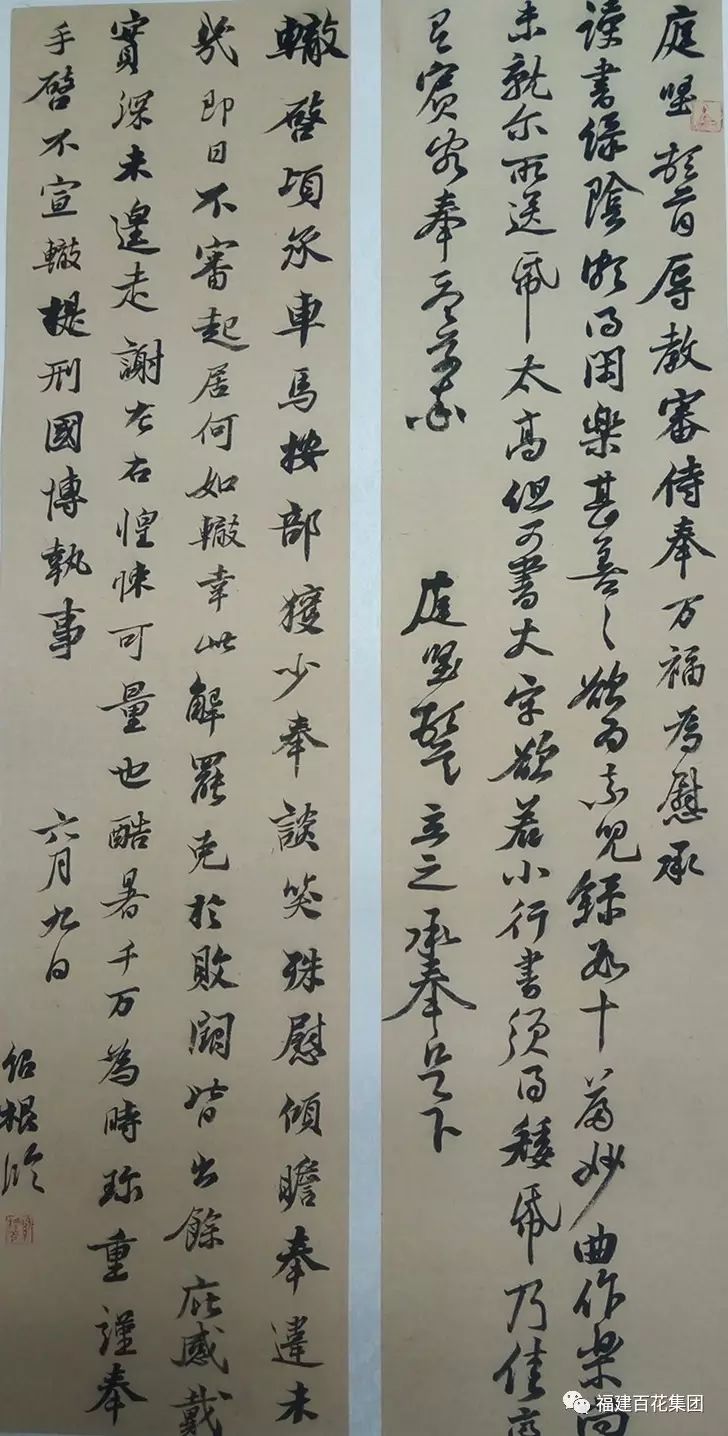 庭堅頓首辱教審侍奉万福為慰承
读書緑陰頗得閑樂甚善〻欲為素兒録數十篇妙曲作樂尚
未就尔所送紙太高但可書大字欲若小行書須得矮紙乃佳適
有賓客奉答草率 庭堅頓首 立之承奉足下
轍啓頃承車馬按部獲少奉談笑殊慰傾瞻奉違未
幾即日不審起居何如轍幸此解罷克於敗闕皆出餘庇感戴
實深未遑走謝左右惶悚可量也酷暑千万為時珎重謹奉
手啓不宣轍提刑國博執事 六月九日
绍根臨
福建百花集团